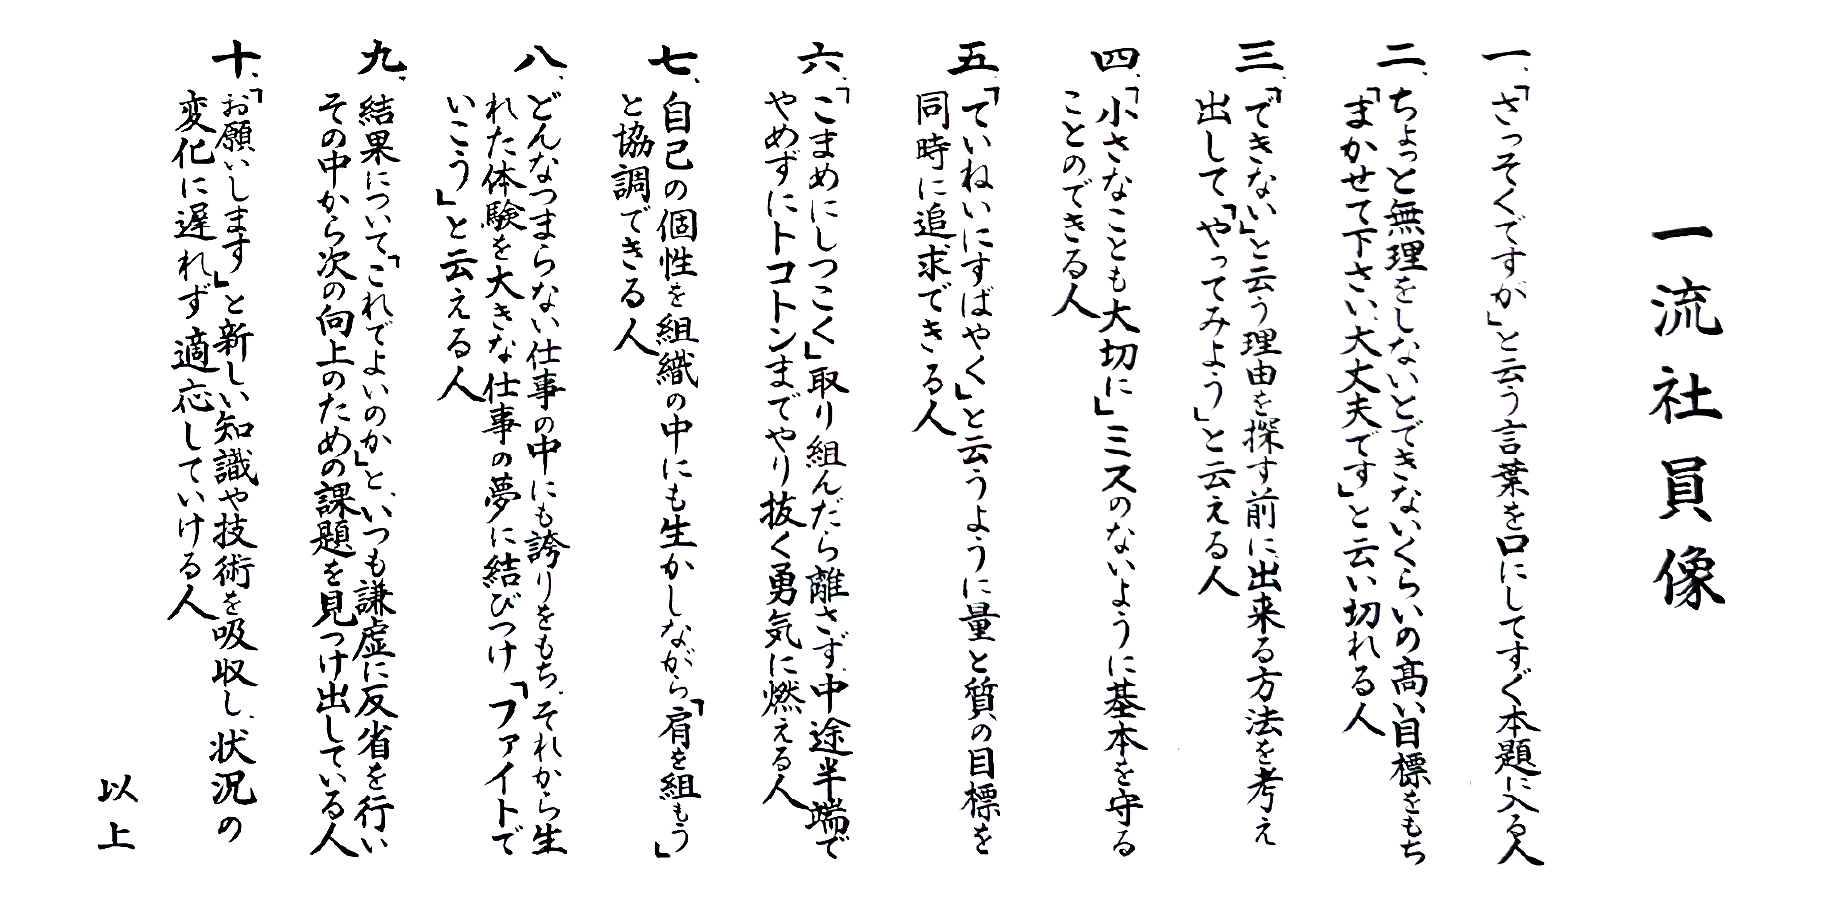 一流社員像
一、「さっそくですが」と云う言葉を口にしてすぐ本題に入る人
二、ちょっと無理をしないとできないくらいの高い目標をもち
「まかせて下さい、大丈夫です」と云い切れる人
三、「できない」と云う理由を探す前に、出来る方法を考え
出して「やってみよう」と云える人
四、「小さなことも大切に」ミスのないように基本を守る
ことのできる人
五、「ていねいにすばやく」と云うように量と質の目標を
同時に追求できる人
六、「こまめにしつこく」取り組んだら離さず、中途半端で
やめずにトコトンまでやり抜く勇気に燃える人
七、自己の個性を組織の中にも生かしながら「肩を組もう」
と協調できる人
八、どんなつまらない仕事の中にも誇りをもち、それから生
れた体験を大きな仕事の夢に結びつけ「ファイトで
いこう」と云える人
九、結果について「これでよいのか」と、いつも謙虚に反省を行い
その中から次の向上のための課題を見つけ出している人
十、「お願いします」と新しい知識や技術を吸収し、状況の
変化に遅れず適応していける人
以上